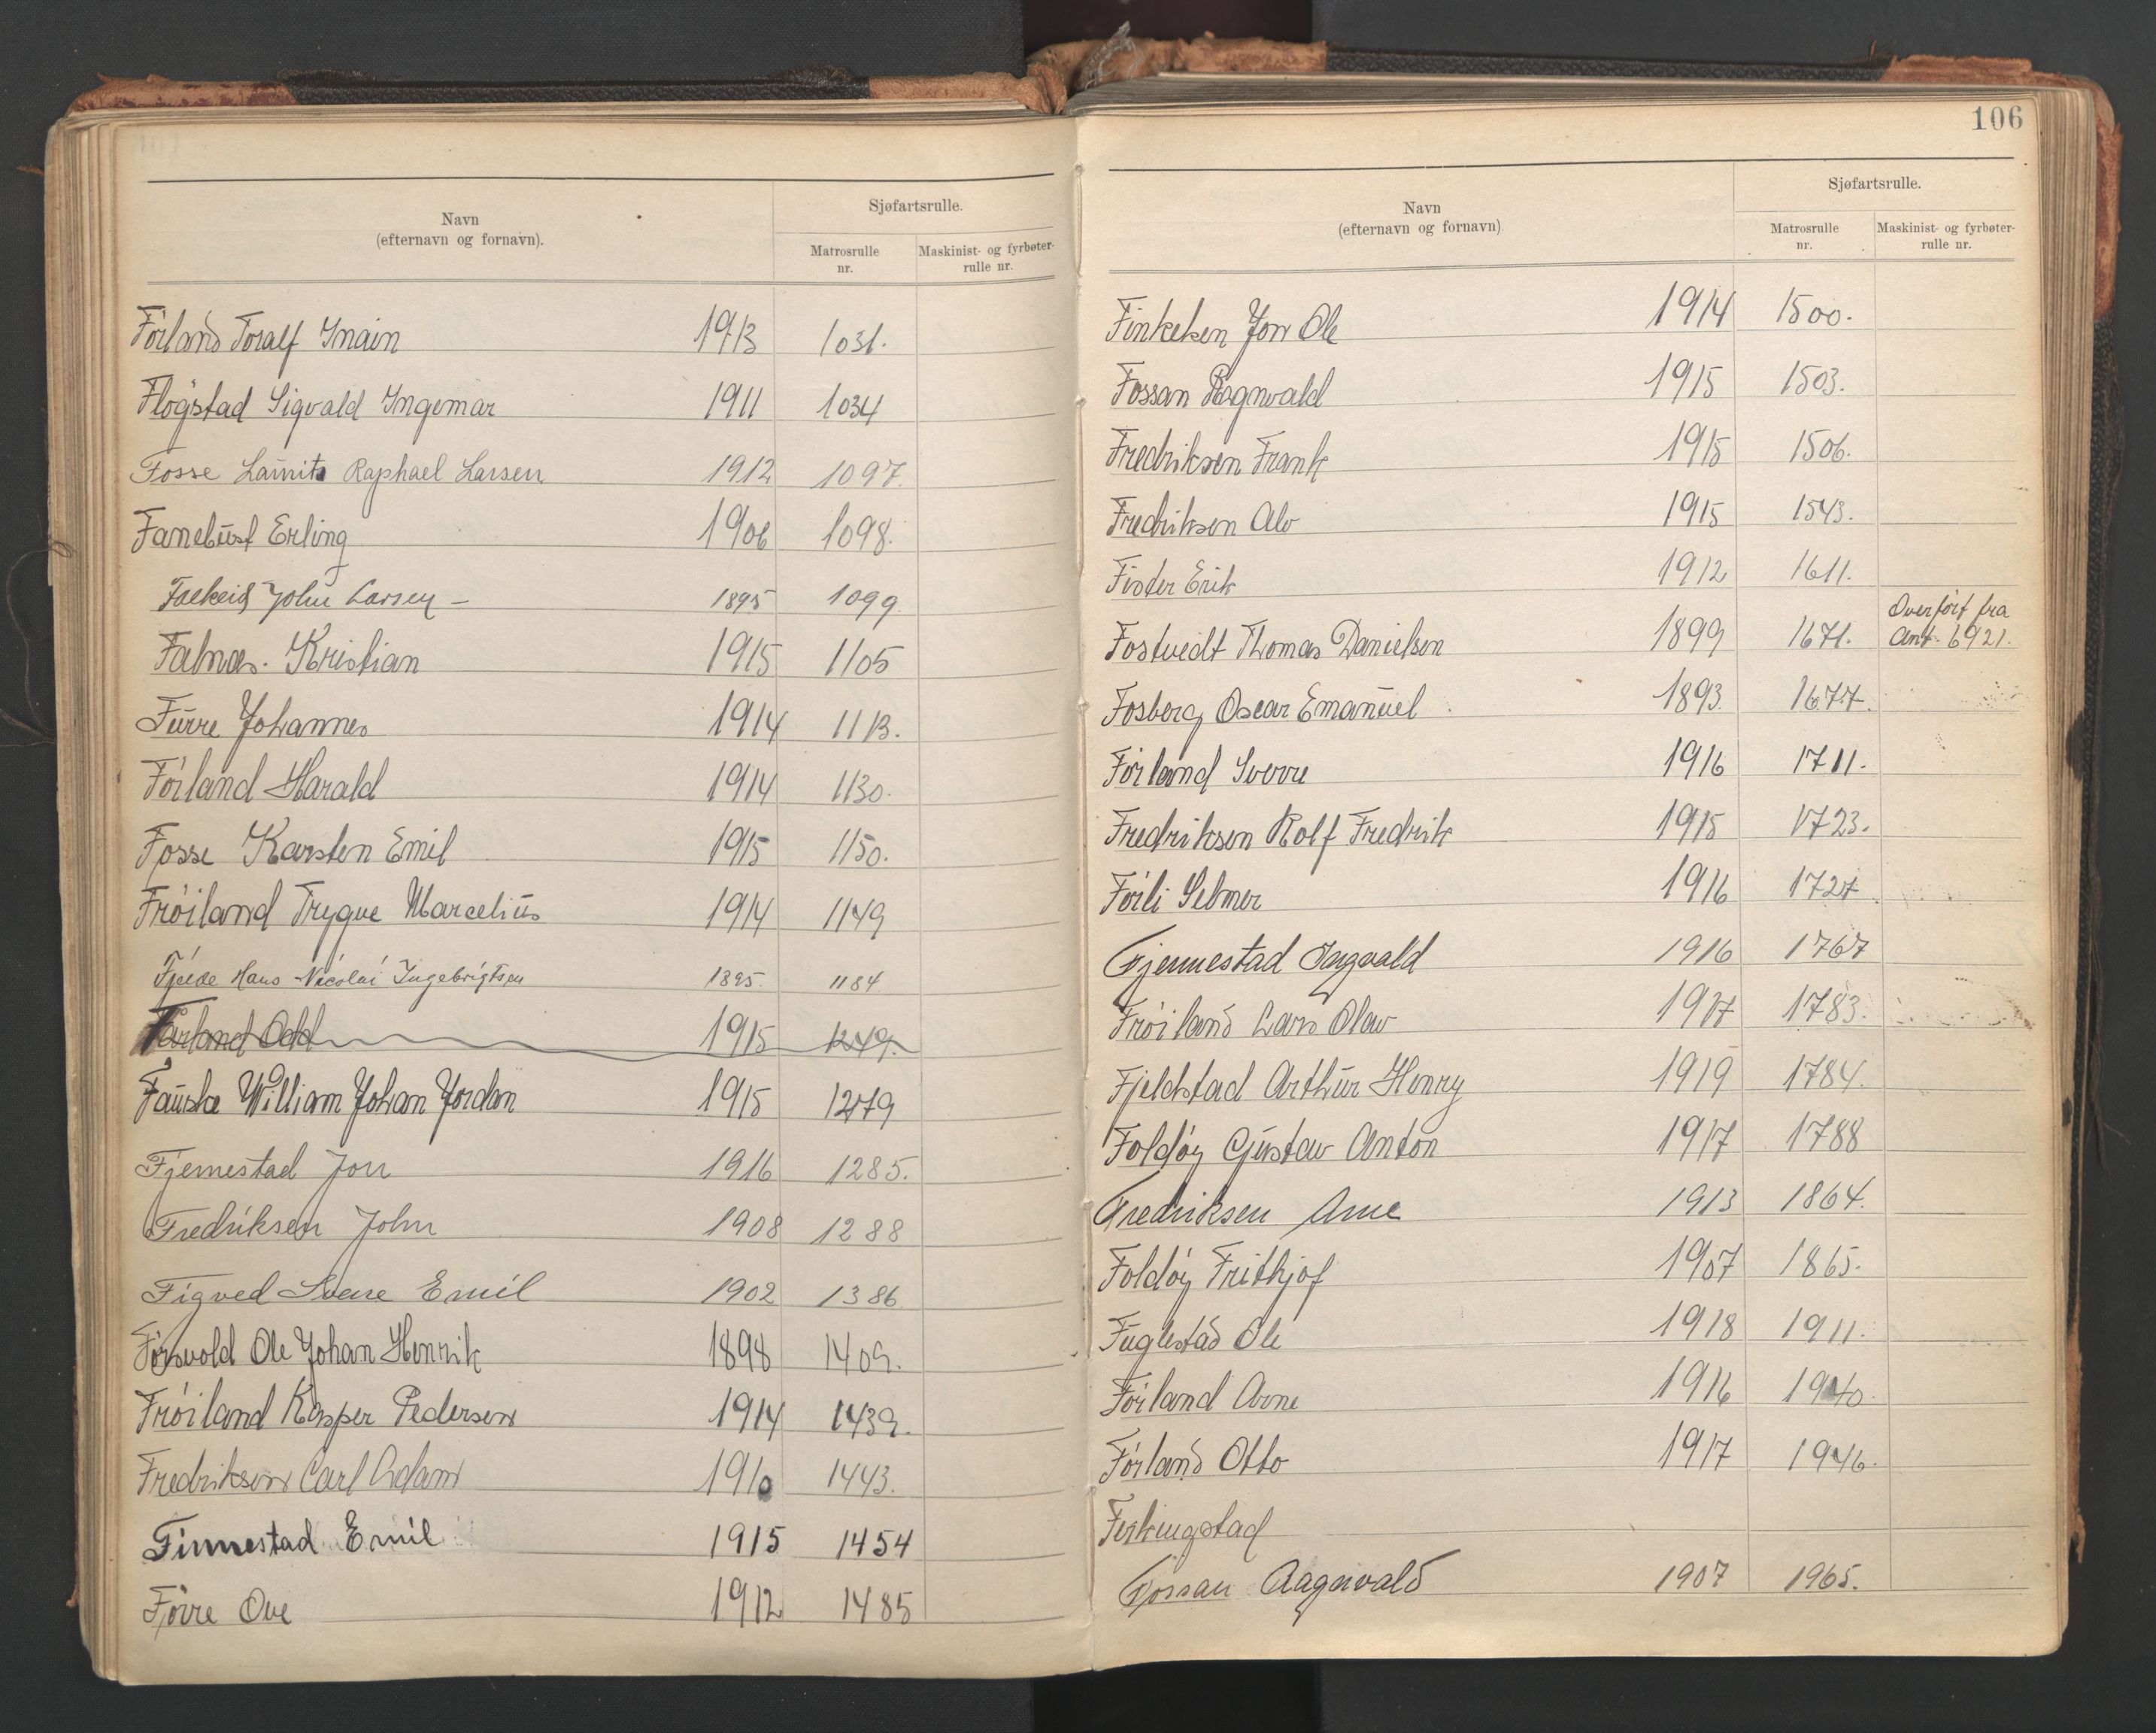 Navn
(efternavn og fornavn).
Sjøfartsrulle.
Matrosrulle
nr.
Maskinist- og fyrbøter-
rulle nr.
Förland Toralf Inain 1913 1031.
Flögstad Sigvald Ingemar 1911 1034
Fosse Raphael Larsen 1912 1097.
Fanebust Erling 1906 1098.
John Larsen - 1895 1099.
Falnæs. Kristian 1915 1105
Furre Johannes 1914 1113.
Förland Harald 1914 1130.
Fosse Karsten Emil 1915 1150.
Fröiland Trygve Marcelius 1914 1149
Fjelde Hans Nicolai Ingebrigtsen 1895. 1184
Førland Odd 1915 1249.
Fauske William Johan Jordan 1915 1279
Fjermestad Jon 1916 1285.
Fredriksen John 1908 1288
Figved Svere Emil 1902 1386
Forsvold Ole Johan Henrik 1898 1409.
Fröiland Kasper Pedersen 1914 1439.
Fredriksen Carl Adam 1910 1443.
Finnestad Emil 1915 1454
Förre Ove 1912 1485
106
Navn
(efternavn og fornavn)
Sjøfartsrulle.
Matrosrulle
nr.
Maskinist- og fyrbøter-
rulle nr.
Finkelsen Jon Ole 1914 1500.
Fossan Ragnvald 1915 1503.
Fredriksen Frank 1915 1506.
Fredriksen Alv 1915 1543.
Fister Erik 1912 1611.
Overfört fra
Fostvedt Thomas Danielsen 1899 1671. Ant. 6921.
Fosberg Oscar Emanuel 1893. 1677.
Förland Sverre 1916 1711.
Fredriksen Rolf Fredrik 1915 1723.
Förli Selmer 1916 1727.
Fjermestad Ingvald 1916 1767
Fröiland Lars Olav 1917 1783.
Fjeldstad Arthur Henry 1919 1784.
Foldöy Gustav Anton 1917 1788
Fredriksen Arne 1913 1864.
Foldöy Frithjof 1907 1865.
Fuglestad Ole 1918 1911.
Förland Arne 1916 1940.
Förland Otto 1917 1946.
Ferkingstad
Fossan Ragnvald 1907 1965.